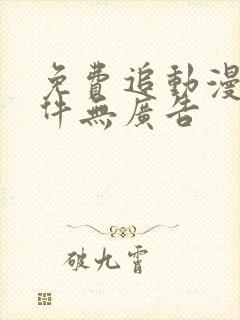 免費追動漫
件無廣告
破九霄